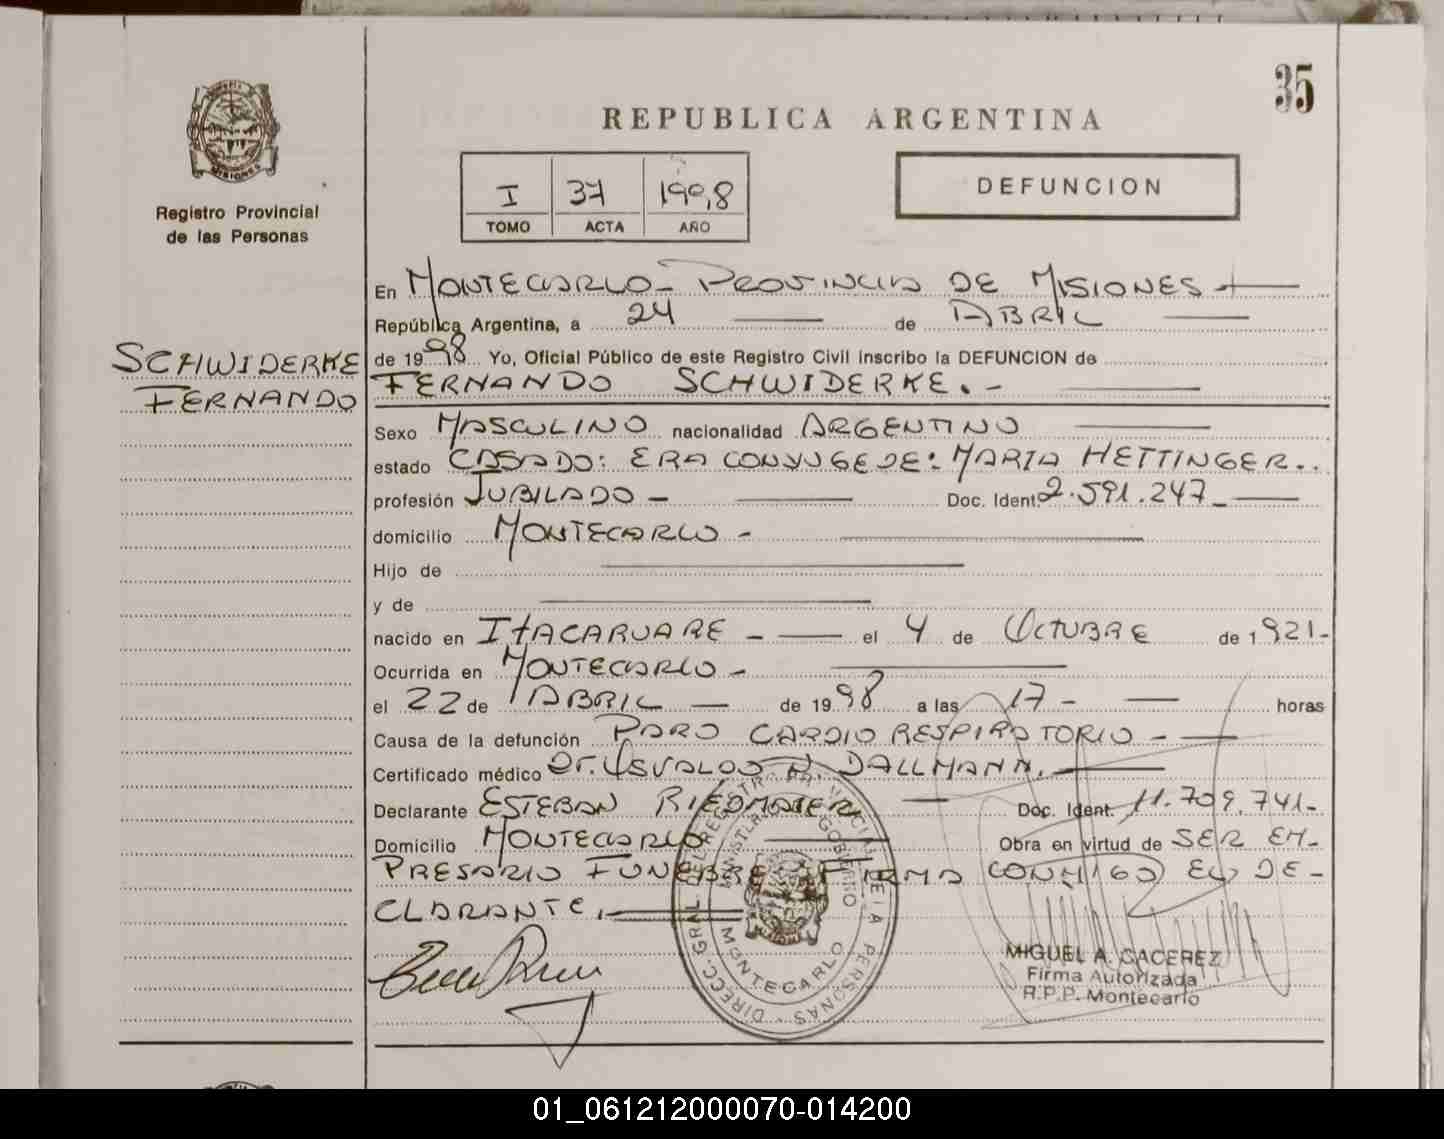 35
REPUBLICA ARGENTINA
Registro Provincial
de las Personas
I 37 1998
TOMO ACTA AÑO
DEFUNCION
SCHWIDERKE
FERNANDO
En MONTECARLO - PROVINCIA DE MISIONES
República Argentina, a 24 de ABRIL
de 1998 Yo, Oficial Público de este Registro Civil inscribo la DEFUNCION de
FERNANDO SCHWIDERKE.-
Sexo MASCULINO nacionalidad ARGENTINO
estado CASADO: ERA CONYUGE DE: MARIA HETTINGER..
profesión JUBILADO - Doc. Ident. 2.591.247-
domicilio MONTECARLO -
Hijo de
y de
nacido en ITACARUARE - el 4 de OCTUBRE de 1921-
Ocurrida en MONTECARLO -
el 22 de ABRIL de 1998 a las 17 - horas
Causa de la defunción PARO CARDIO RESPIRATORIO -
Certificado médico Dr. OSVALDO H. DALLMANN.
Declarante ESTEBAN RIEDMAIER Doc. Ident. 11.709.741-
Domicilio MONTECARLO Obra en virtud de SER EM-
PRESARIO FUNEBRE FIRMA CONMIGO EL DE-
CLARANTE.
DIRECC. GRAL. DEL REGISTRO PROVINCIAL DE LA PERSONAS
MINISTERIO GOBIERNO
MONTECARLO
MIGUEL A. CACEREZ
Firma Autorizada
R.P.P. Montecarlo
01_061212000070-014200